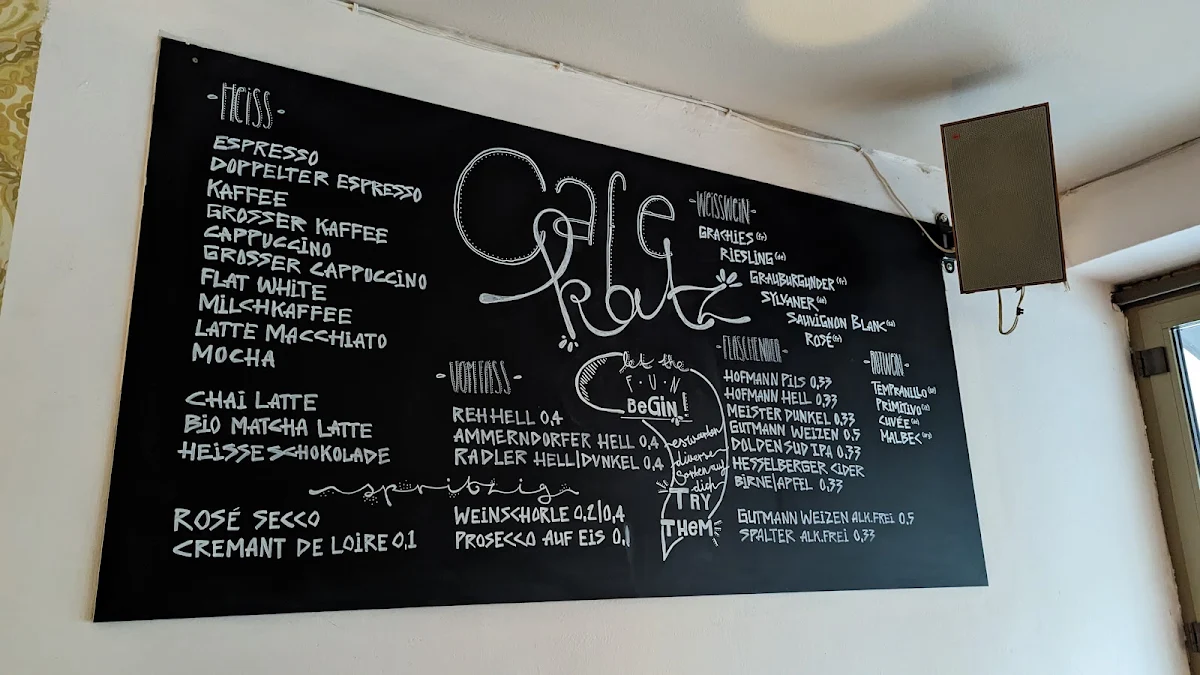 HEISS
ESPRESSO
DOPPELTER ESPRESSO
KAFFEE
GROSSER KAFFEE
CAPPUCCINO
GROSSER CAPPUCCINO
FLAT WHITE
MILCHKAFFEE
LATTE MACCHIATO
MOCHA
CHAI LATTE
BIO MATCHA LATTE
HEISSE SCHOKOLADE
Cafe
Kautz
WEISSWEIN
GRACHIES (fr)
RIESLING (de)
GRAUBURGUNDER
SYLVANER (de)
SAUVIGNON BLANC
ROSÉ (fr)
VOM FASS
REH HELL 0,4
AMMERNDORFER HELL 0,4
RADLER HELL|DUNKEL 0,4
let the
F·U·N
BEGIN!
es warten
diverse
Sorten auf
dich
TRY
THEM
FLASCHENBIER
HOFMANN PILS 0,33
HOFMANN HELL 0,33
MEISTER DUNKEL 0,33
GUTMANN WEIZEN 0,5
DOLDEN SUD IPA 0,33
HESSELBERGER CIDER
BIRNE|APFEL 0,33
GUTMANN WEIZEN ALK.FREI 0,5
SPALTER ALK.FREI 0,33
ROTWEIN
TEMPRANILLO
PRIMITIVO
CUVÉE
MALBEC
spritzig
ROSÉ SECCO
CREMANT DE LOIRE 0,1
WEINSCHORLE 0,2|0,4
PROSECCO AUF EIS 0,1